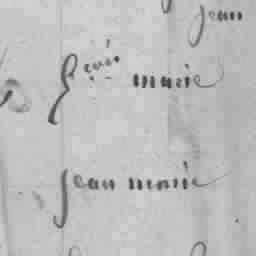 jean
marie
jean marie